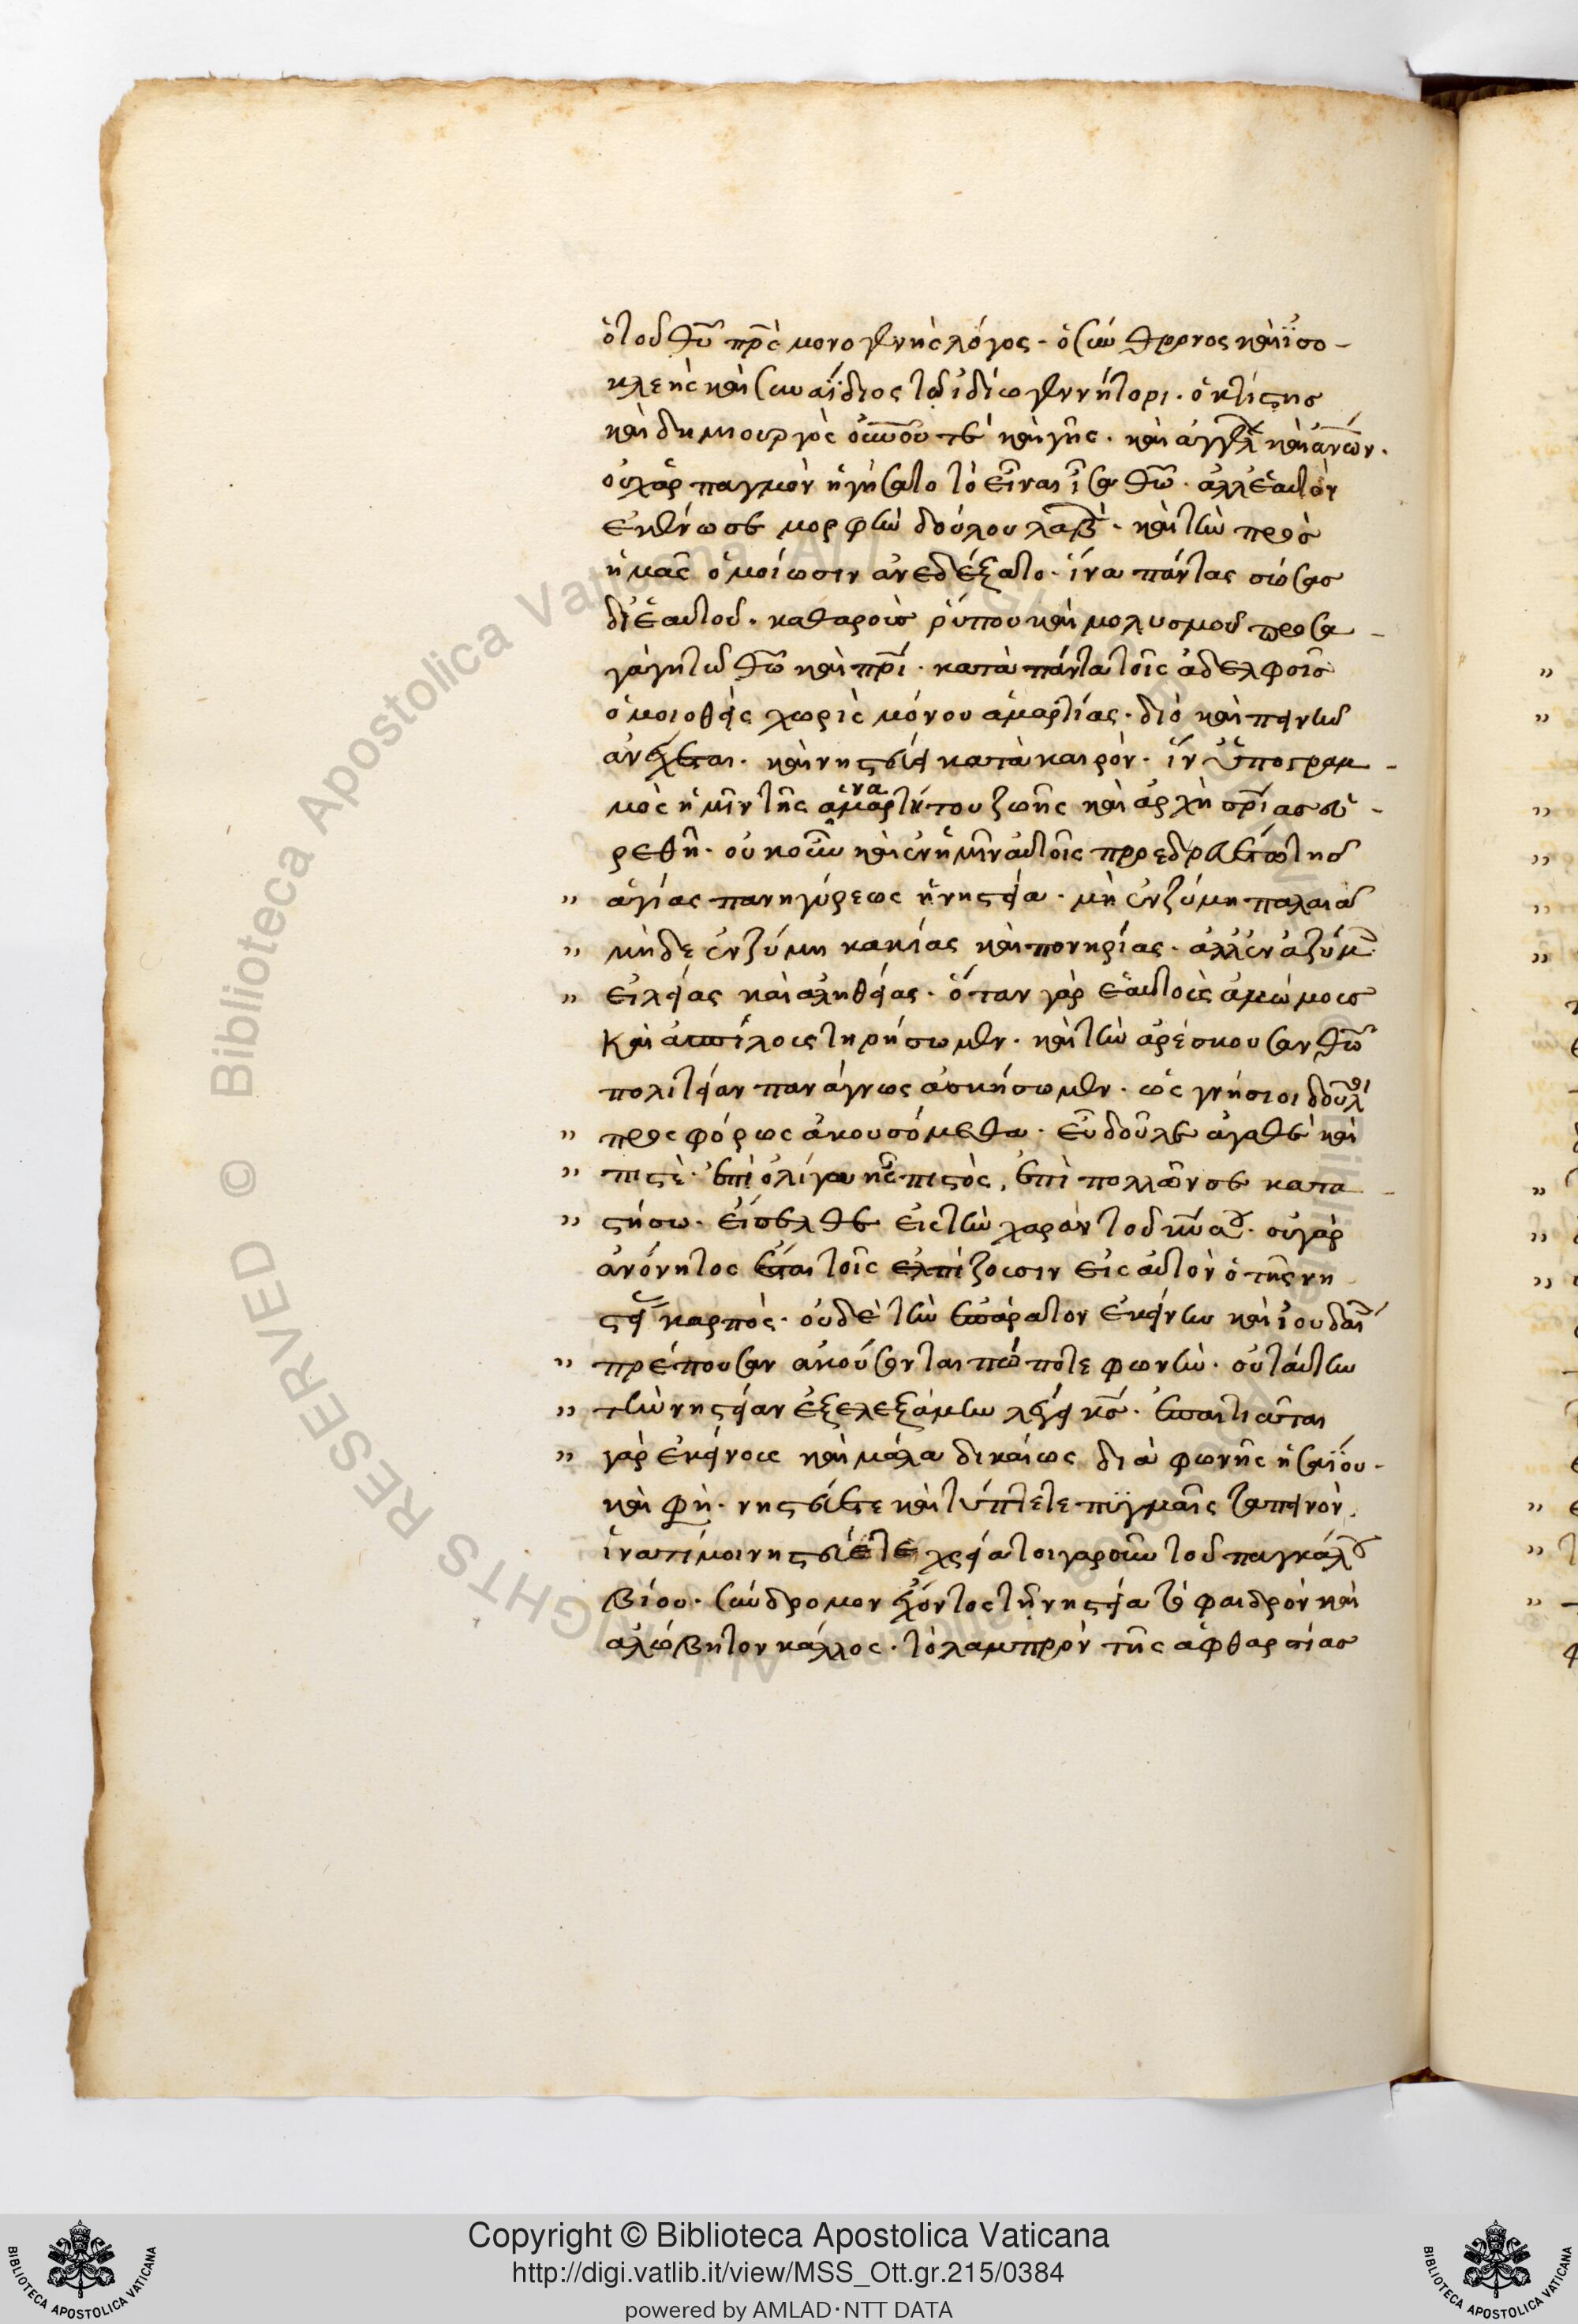 ὁ τοῦ θ̅υ̅ π̅ρ̅ς μονογενὴς λόγος · ὁ σύνθρονος καὶ ἰσο-
κλεὴς καὶ συναΐδιος τῷ ἰδίῳ γεννήτορι · ὁ κτίστης
καὶ δημιουργὸς ο̅υ̅ν̅ο̅υ̅ τὲ καὶ γῆς · καὶ ἀγγέλ καὶ α̅ν̅ω̅ν̅ ·
οὐχ ἁρπαγμὸν ἡγήσατο τὸ εἶναι ἶσα θ̅ω̅ · ἀλλ' ἑαυτὸν
ἐκένωσε μορφὴν δούλου λαβ · καὶ τὴν πρὸς
ἡμᾶς ὁμοίωσιν ἀνεδέξατο · ἵνα πάντας σώσας
δι' ἑαυτοῦ · καθαροὺς ῥύπου καὶ μολυσμοῦ προσα-
γάγη τῷ θ̅ω̅ καὶ π̅ρ̅ι̅ · κατὰ πάντα τοῖς ἀδελφοῖς
ὁμοιοθεὶς χωρὶς μόνου ἁμαρτίας · διὸ καὶ πεινῶν
ἀνέχεται · καὶ νηστεύει κατὰ καιρόν · ἵν' ὑπογραμ-
μὸς ἡμῖν τῆς ἀναμαρτήτου ζωῆς καὶ ἀρχὴ σ̅ρ̅ι̅ας εὑ-
ρεθῆ · οὐκοῦν καὶ ἐν ἡμῖν αὐτοῖς προεδρευέτω τῆς
" ἁγίας πανηγύρεως ἡ νηστεία · μὴ ἐν ζύμη παλαιᾶ
" μὴδε ἐν ζύμη κακίας καὶ πονηρίας · ἀλλ' ἐν ἀζύμ
" εἰλείας καὶ ἀληθείας · ὅταν γὰρ ἑαυτοὺς ἀμώμους
καὶ ἀσπίλους τηρήσωμεν · καὶ τὴν ἀρέσκουσαν θ̅ω̅
πολιτείαν πανάγνως ἀσκήσωμεν · ὡς γνήσιοι δοῦλοι
" προσφόρως ἀκουσόμεθα · εὖ δοῦλε ἀγαθὲ καὶ
" πιστὲ · ἐπὶ ὀλίγα ἦς πιστὸς, ἐπὶ πολλῶν σε κατα-
" στήσω · εἴσελθε εἰς τὴν χαρὰν τοῦ κ̅υ̅ σου · οὐ γὰρ
ἀνόνητος ἔσται τοῖς ἐλπίζουσιν εἰς αὐτὸν ὁ τῆς νη
στεί καρπὸς · οὐδὲ τὴν ἐπάρατον ἐκείνην καὶ ἰουδαί
" πρέπουσαν ἀκούσονται πώποτε φωνὴν · οὐ ταύτην
" τὴν νηστείαν ἐξελεξάμην λέγει κ̅ς̅ · ἐπαιτιᾶται
" γὰρ ἐκείνοις καὶ μάλα δικαίως διὰ φωνῆς ἡσαΐου ·
καὶ φη · νηστεύετε καὶ τύπτετε πυγμαῖς ταπεινόν ·
ἱνατί μοι νηστεύετε χρεία τοιγαροῦν τοῦ παγκάλου
βίου · σύνδρομον ἔχοντος τῆ νηστεία τὸ φαιδρὸν καὶ
ἀλώβητον κάλλος · τὸ λαμπρὸν τῆς ἀφθαρσίας
Copyright © Biblioteca Apostolica Vaticana
http://digi.vatlib.it/view/MSS_Ott.gr.215/0384
powered by AMLAD·NTT DATA